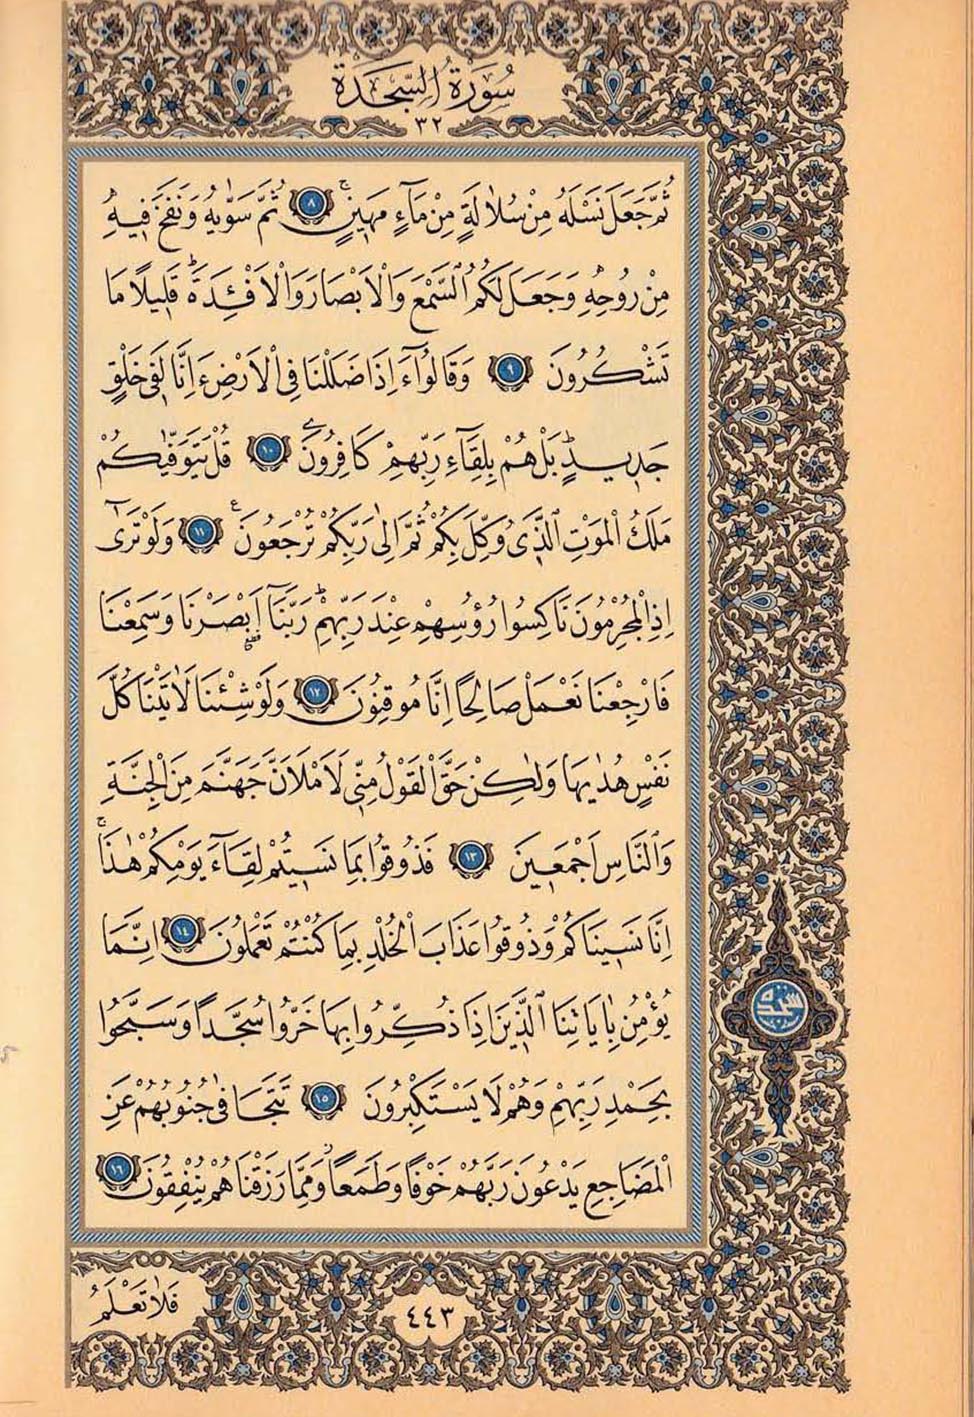 سُورَةُ السَّجْدَةِ
٣٢
ثُمَّ جَعَلَ نَسْلَهُ مِنْ سُلَالَةٍ مِنْ مَٓاءٍ مَهٖينٍۚ ﴿٨﴾ ثُمَّ سَوّٰيهُ وَنَفَخَ فٖيهِ
مِنْ رُوحِهٖ وَجَعَلَ لَكُمُ السَّمْعَ وَالْاَبْصَارَ وَالْاَفْـِٔدَةَؕ قَلٖيلًا مَا
تَشْكُرُونَ ﴿٩﴾ وَقَالُٓوا ءَاِذَا ضَلَلْنَا فِى الْاَرْضِ ءَاِنَّا لَفٖى خَلْقٍ
جَدٖيدٍؕ بَلْ هُمْ بِلِقَٓاءِ رَبِّهِمْ كَافِرُونَ ﴿١٠﴾ قُلْ يَتَوَفّٰيكُمْ
مَلَكُ الْمَوْتِ الَّذٖى وُكِّلَ بِكُمْ ثُمَّ اِلٰى رَبِّكُمْ تُرْجَعُونَࣖ ﴿١١﴾ وَلَوْ تَرٰٓى
اِذِ الْمُجْرِمُونَ نَاكِسُوا رُؤُ۫سِهِمْ عِنْدَ رَبِّهِمْؕ رَبَّنَٓا اَبْصَرْنَا وَسَمِعْنَا
فَارْجِعْنَا نَعْمَلْ صَالِحًا اِنَّا مُوقِنُونَ ﴿١٢﴾ وَلَوْ شِئْنَا لَاٰتَيْنَا كُلَّ
نَفْسٍ هُدٰيهَا وَلٰكِنْ حَقَّ الْقَوْلُ مِنّٖى لَاَمْلَاَنَّ جَهَنَّمَ مِنَ الْجِنَّةِ
وَالنَّاسِ اَجْمَعٖينَ ﴿١٣﴾ فَذُوقُوا بِمَا نَسٖيتُمْ لِقَٓاءَ يَوْمِكُمْ هٰذَاۚ
اِنَّا نَسٖينَاكُمْ وَذُوقُوا عَذَابَ الْخُلْدِ بِمَا كُنْتُمْ تَعْمَلُونَ ﴿١٤﴾ اِنَّمَا
يُؤْمِنُ بِاٰيَاتِنَا الَّذٖينَ اِذَا ذُكِّرُوا بِهَا خَرُّوا سُجَّدًا وَسَبَّحُوا
بِحَمْدِ رَبِّهِمْ وَهُمْ لَا يَسْتَكْبِرُونَ ﴿١٥﴾ تَتَجَافٰى جُنُوبُهُمْ عَنِ
الْمَضَاجِعِ يَدْعُونَ رَبَّهُمْ خَوْفًا وَطَمَعًاؗ وَمِمَّا رَزَقْنَاهُمْ يُنْفِقُونَ ﴿١٦﴾
سجده
فَلَا تَعْلَمُ
٤٤٣